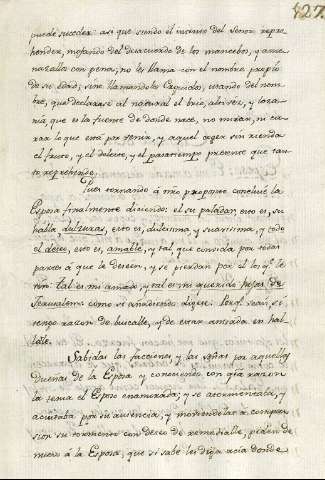 427.
puede succeder: asi que siendo el intento del Señor repre-
hender, mofando del desacuerdo de los mancebos, y ame-
nazallos con pena; no los llama con el nombre propio
de su edad; sino llamandolos Escogidos, usando del nom-
bre, que declarase al natural el brio, altivez, y loza-
nia que es la fuente de donde nace, no mirar, ni ca-
tar lo que está por venir, y aquel coger sin rienda
el fruto, y el deleite, y el pasatiempo presente que tan-
to reprehende.
Pues tornando á mi proposito concluie la
Esposa finalmente diciendo: el su paladar, esto es, su
habla dulzuras, esto es, dulcisima, y suavisima, y todo
el deseo, esto es, amable, y tal que convida por todas
partes á que le deseen, y se pierdan por él los q.e le
ven. Tal es mi amado, y tal es mi querido, hijas de
Jerusalem: como si añadiendo dijese: Porq.e veais, si
tengo razon de buscalle, y de estar ansiada en no ha-
llalle.
Sabidas las facciones, y las señas por aquellas
dueñas de la Esposa y conociendo con q.ta razon
la tema el Esposo enamorada; y se atormentaba, y
acuitaba por su ausencia, y movidas de la compa-
sion su tormento con deseo de remedialle, piden de
nuevo á la Esposa, que si sabe les diga acia donde